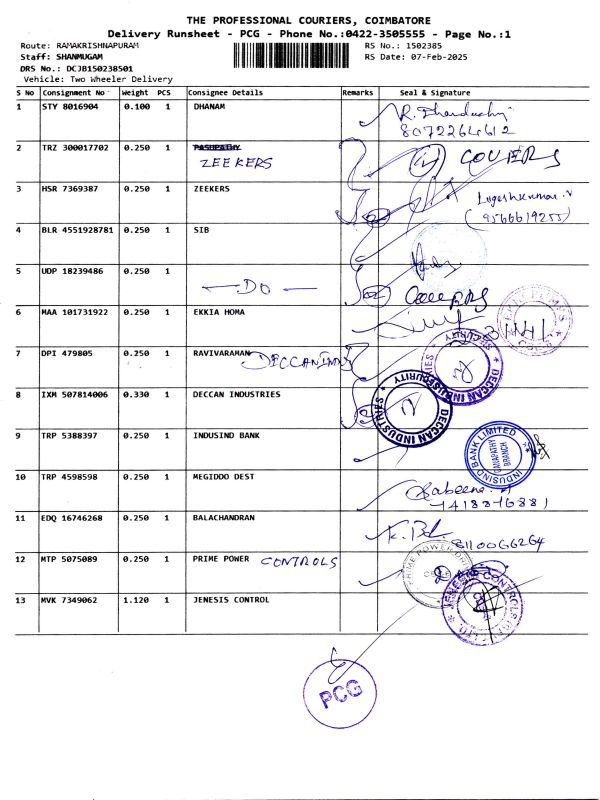 THE PROFESSIONAL COURIERS, COIMBATORE
Delivery Runsheet - PCG - Phone No.:0422-3505555 - Page No.:1
Route: RAMAKRISHNAPURAM
RS No.: 1502385
Staff: SHANMUGAM
RS Date: 07-Feb-2025
DRS No.: DCJB150238501
Vehicle: Two Wheeler Delivery
S No Consignment No Weight PCS Consignee Details Remarks Seal & Signature
1 STY 8016904 0.100 1 DHANAM
8072264612
2 TRZ 300017702 0.250 1 PASUPATHY
ZEEKERS
3 HSR 7369387 0.250 1 ZEEKERS
Logeshkumar.V
(9566619255)
4 BLR 4551928781 0.250 1 SIB
5 UDP 18239486 0.250 1
— DO —
6 MAA 101731922 0.250 1 EKKIA HOMA
7 DPI 479805 0.250 1 RAVIVARAMAN
8 IXM 507814006 0.330 1 DECCAN INDUSTRIES
DECCAN INDUSTRIES
SECURITY
DECCAN INDUSTRIES
SECURITY
9 TRP 5388397 0.250 1 INDUSIND BANK
INDUSIND BANK LIMITED
BRANCH
10 TRP 4598598 0.250 1 MEGIDDO DEST
11 EDQ 16746268 0.250 1 BALACHANDRAN
8110066264
12 MTP 5075089 0.250 1 PRIME POWER CONTROLS
13 MVK 7349062 1.120 1 JENESIS CONTROL
JENESIS CONTROLS
PCG